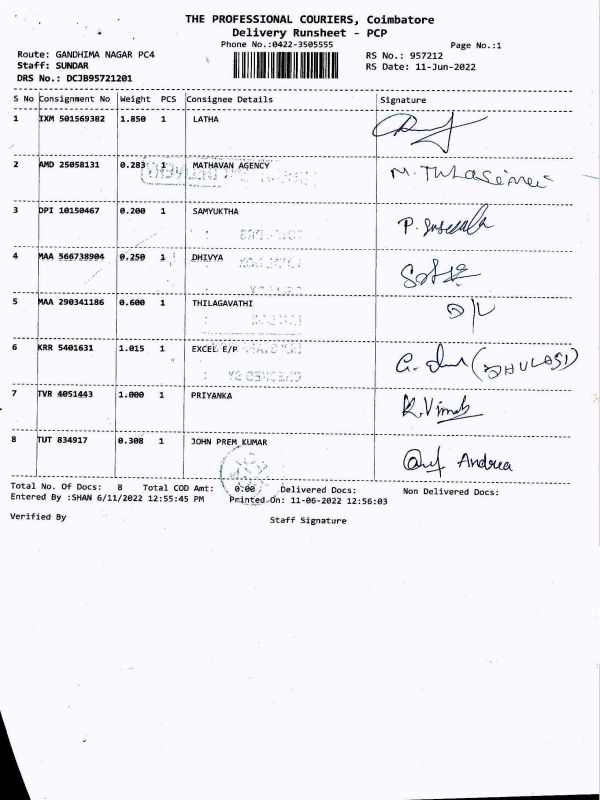 THE PROFESSIONAL COURIERS, Coimbatore
Delivery Runsheet - PCP
Phone No.:0422-3505555 Page No.:1
Route: GANDHIMA NAGAR PC4 RS No.: 957212
Staff: SUNDAR RS Date: 11-Jun-2022
DRS No.: DCJB95721201
S No Consignment No Weight PCS Consignee Details Signature
1 IXM 501569382 1.850 1 LATHA
2 AMD 25058131 0.283 1 MATHAVAN AGENCY
3 DPI 10150467 0.200 1 SAMYUKTHA
4 MAA 566738904 0.250 1 DHIVYA
5 MAA 290341186 0.600 1 THILAGAVATHI
6 KRR 5401631 1.015 1 EXCEL E/P
7 TVR 4051443 1.000 1 PRIYANKA R.Vimab
8 TUT 834917 0.308 1 JOHN PREM KUMAR Andrea
Total No. Of Docs: 8 Total COD Amt: 0.00 Delivered Docs: Non Delivered Docs:
Entered By :SHAN 6/11/2022 12:55:45 PM Printed On: 11-06-2022 12:56:03
Verified By Staff Signature